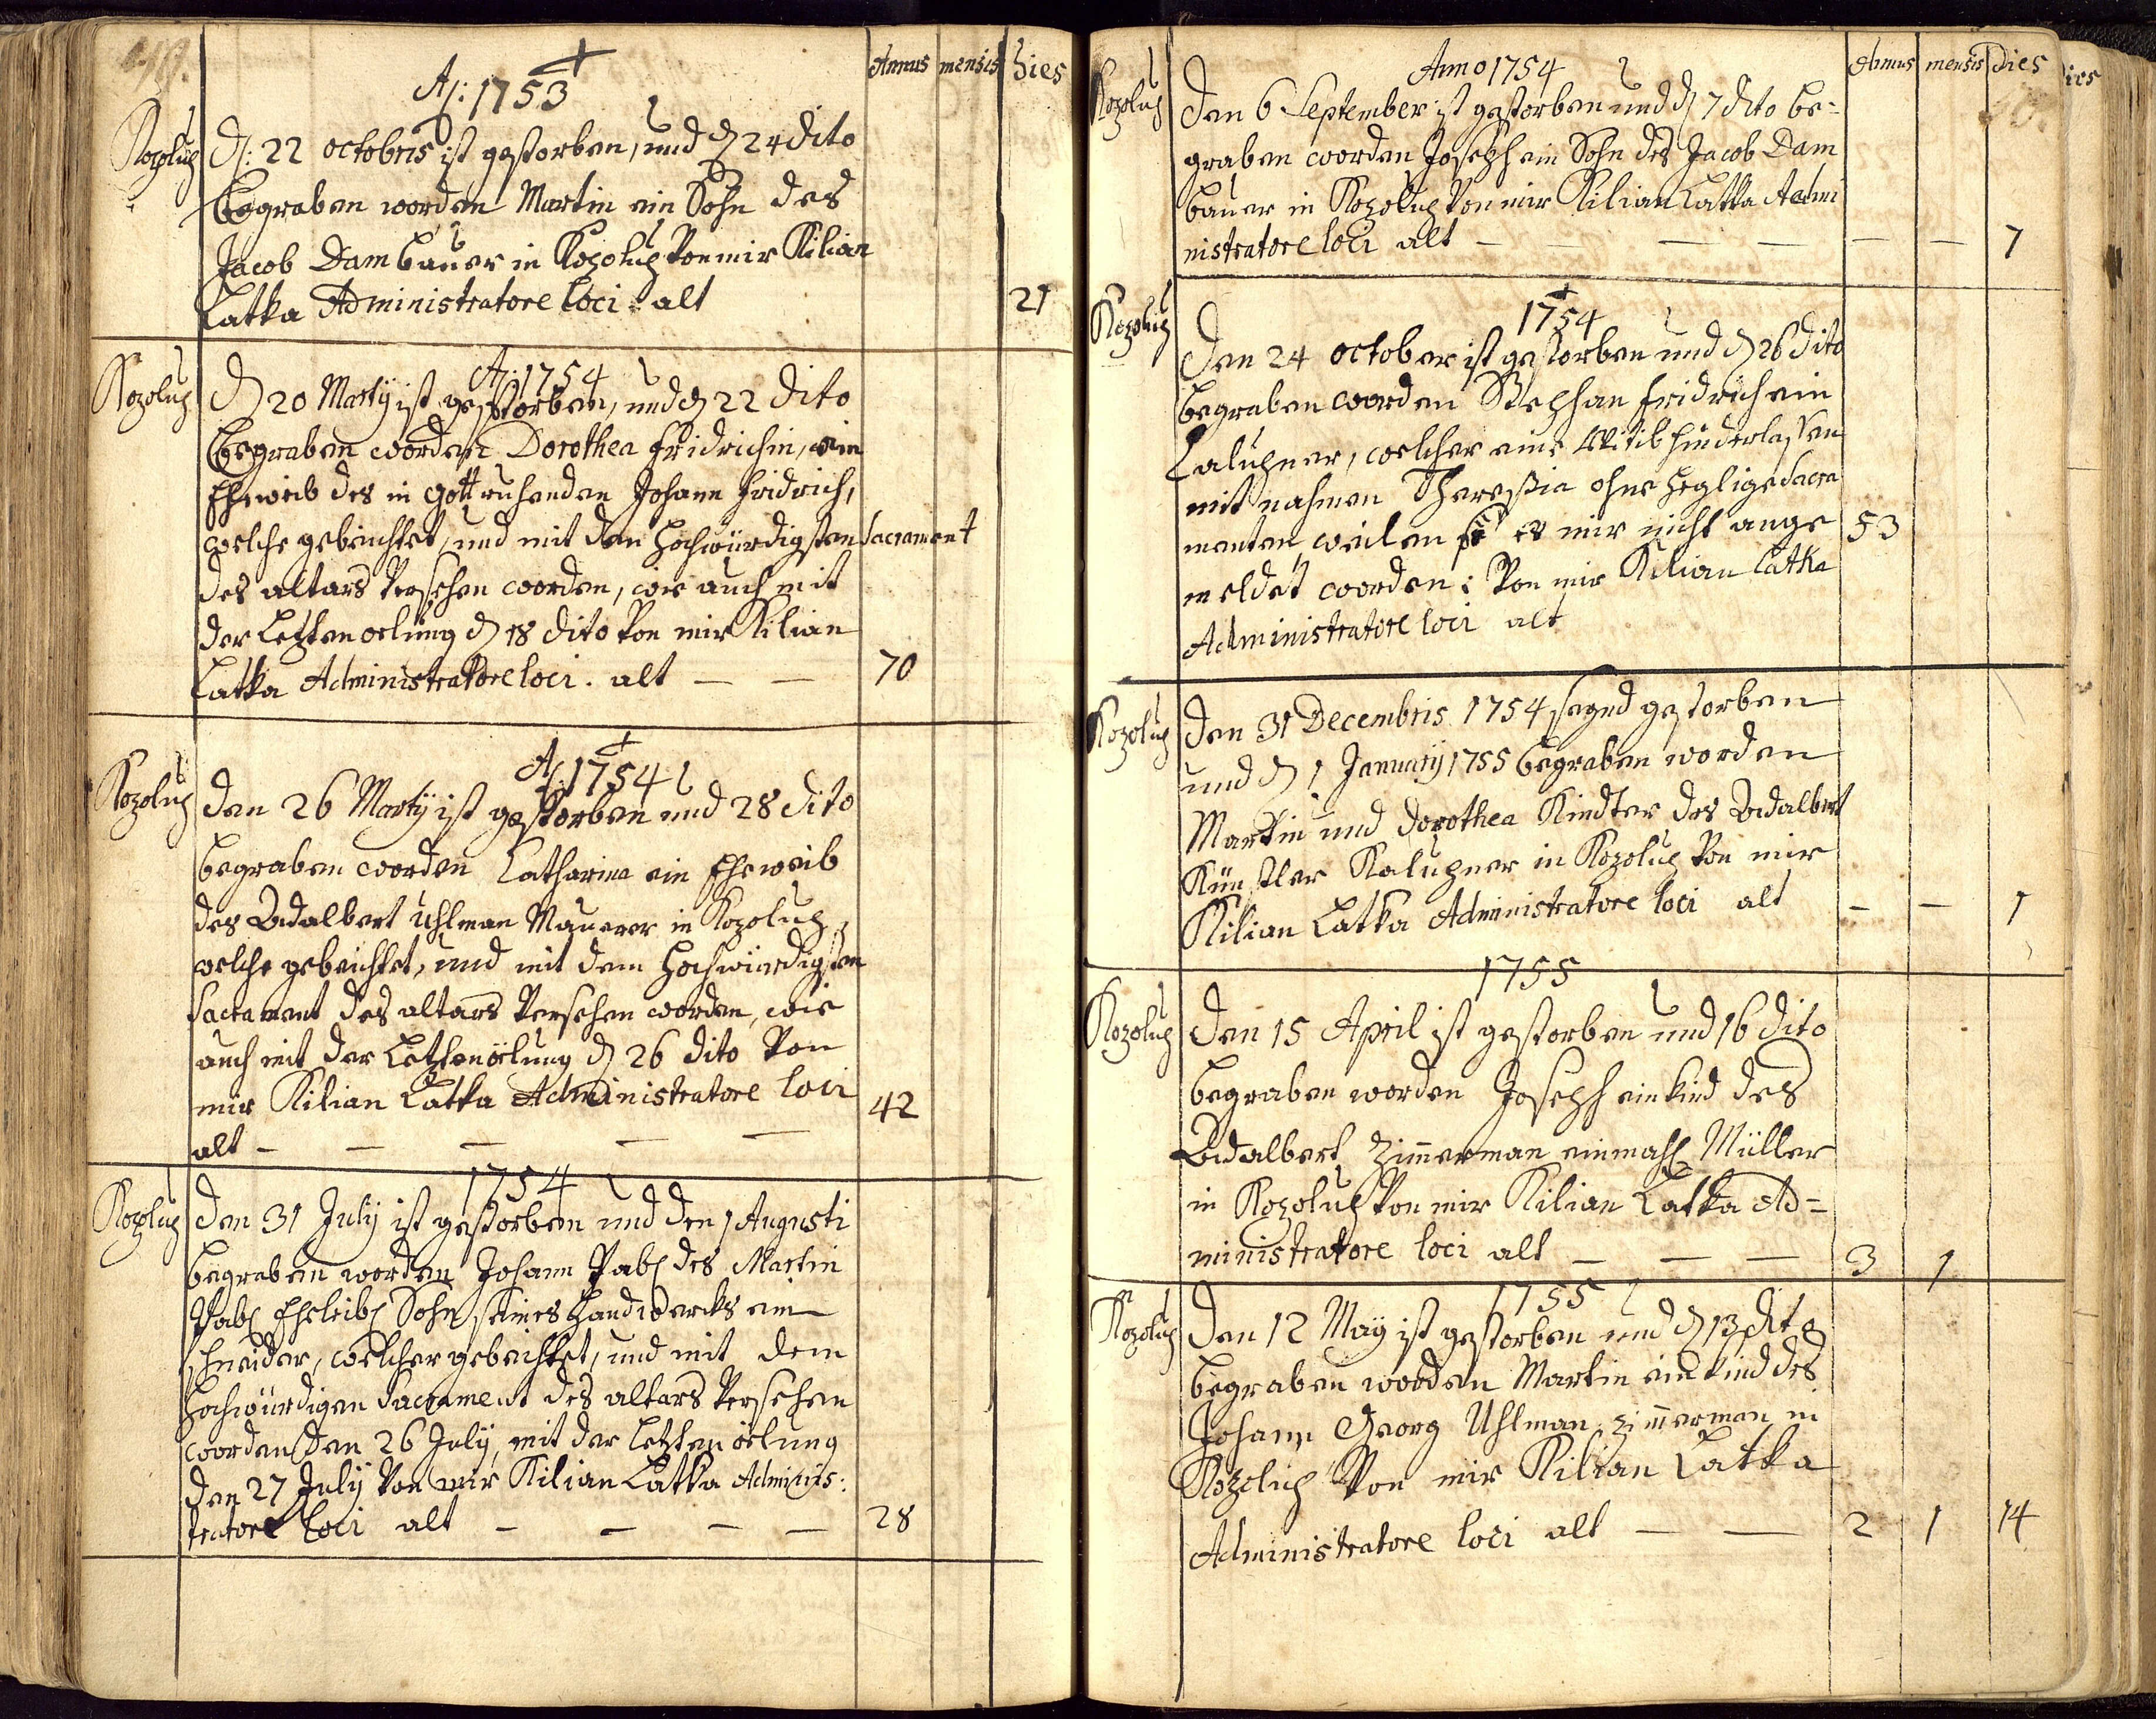 Annus mensis Dies
A: 1753
Kozolup
D: 22 octobris ist gestorben, und d 24 dito
begraben worden Martin ein Sohn des
Jacob Dam bauer in Kozolup von mir Kilian
Latka Administratore loci alt 21
A: 1754
Kozolup
D 20 Martij ist gestorben, und d 22 dito
begraben worden Dorothea Fridrichin, ein
Eheweib des in Gott ruhenden Johann Fridrich,
welche gebeichtet, und mit den Hochwürdigsten Sacrament
des altars versehen worden, wie auch mit
der Letzten oelung d 18 dito von mir Kilian
Latka Administratore loci. alt — — 70
A: 1754
Kozolup
Den 26 Martij ist gestorben und 28 dito
begraben worden Catharina ein Eheweib
des Adalbert Uhlman Maurer in Kozolup,
welche gebeichtet, und mit dem Hochwürdigsten
Sacrament des altars versehen worden, wie
auch mit der Letzten ölung d 26 dito von
mir Kilian Latka Administratore loci 42
alt — — — — —
1754
Kozolup
Den 31 July ist gestorben und den 1 Augusti
begraben worden Johann Pabl des Martin
Pabl Ehleibl Sohn seines Handwercks ein
schneider, welcher gebeichtet, und mit dem
Hochwürdigen Sacrament des altars versehen
worden den 26 July, mit der Letzten ölung
den 27 July von mir Kilian Latka Adminis:
tratore loci alt — — — — 28
Annus mensis Dies
Anno 1754
Kozolup
Den 6 September ist gestorben und d 7 dito be=
graben worden Joseph ein Sohn des Jacob Dam
bauer in Kozolup von mir Kilian Latka Admi
nistratore loci alt — — — — — 7
1754
Kozolup
Den 24 october ist gestorben und d 26 dito
begraben worden Stephan Fridrich ein
Calupner, welcher eine Witib hinderlassen
mit nahmen Theresia ohne Heylige Sacra
menten, weilen es mir nicht ange 53
meldet worden: von mir Kilian Latka
Administratore loci alt
Kozolup
Den 31 Decembris 1754 seynd gestorben
und d 1 January 1755 begraben worden
Martin und Dorothea Kindter des Adalbert
Künstler Kalupner in Kozolup von mir
Kilian Latka Administratore loci alt — — 1
1755
Kozolup
Den 15 April ist gestorben und 16 dito
begraben worden Joseph ein Kind des
Adalbert Zimerman einmahl Müller
in Kozolup von mir Kilian Latka Ad=
ministratore loci alt — — — 3 1
1755
Kozolup
Den 12 May ist gestorben und d 13 dito
begraben worden Martin ein Kind des
Johann Georg Uhlman Zimerman in
Kozolup von mir Kilian Latka
Administratore loci alt — — 2 1 14